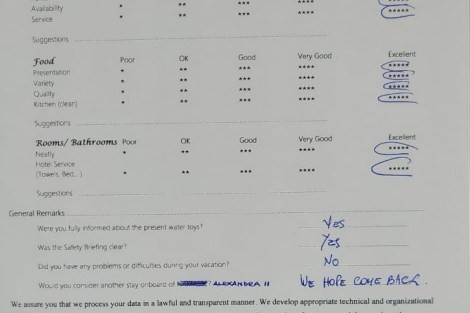 Availability * ** *** **** *****
Service * ** *** **** *****
Suggestions
Food Poor OK Good Very Good Excellent
Presentation * ** *** **** *****
Variety * ** *** **** *****
Quality * ** *** **** *****
Kitchen (clean) * ** *** **** *****
Suggestions
Rooms/ Bathrooms Poor OK Good Very Good Excellent
Neatly * ** *** **** *****
Hotel Service
(Towels, Bed,..) * ** *** **** *****
Suggestions
General Remarks
Were you fully informed about the present water toys? YES
Was the Safety Briefing clear? YES
Did you have any problems or difficulties during your vacation? NO
Would you consider another stay onboard of ALEXANDRA II WE HOPE COME BACK.
We assure you that we process your data in a lawful and transparent manner. We develop appropriate technical and organizational